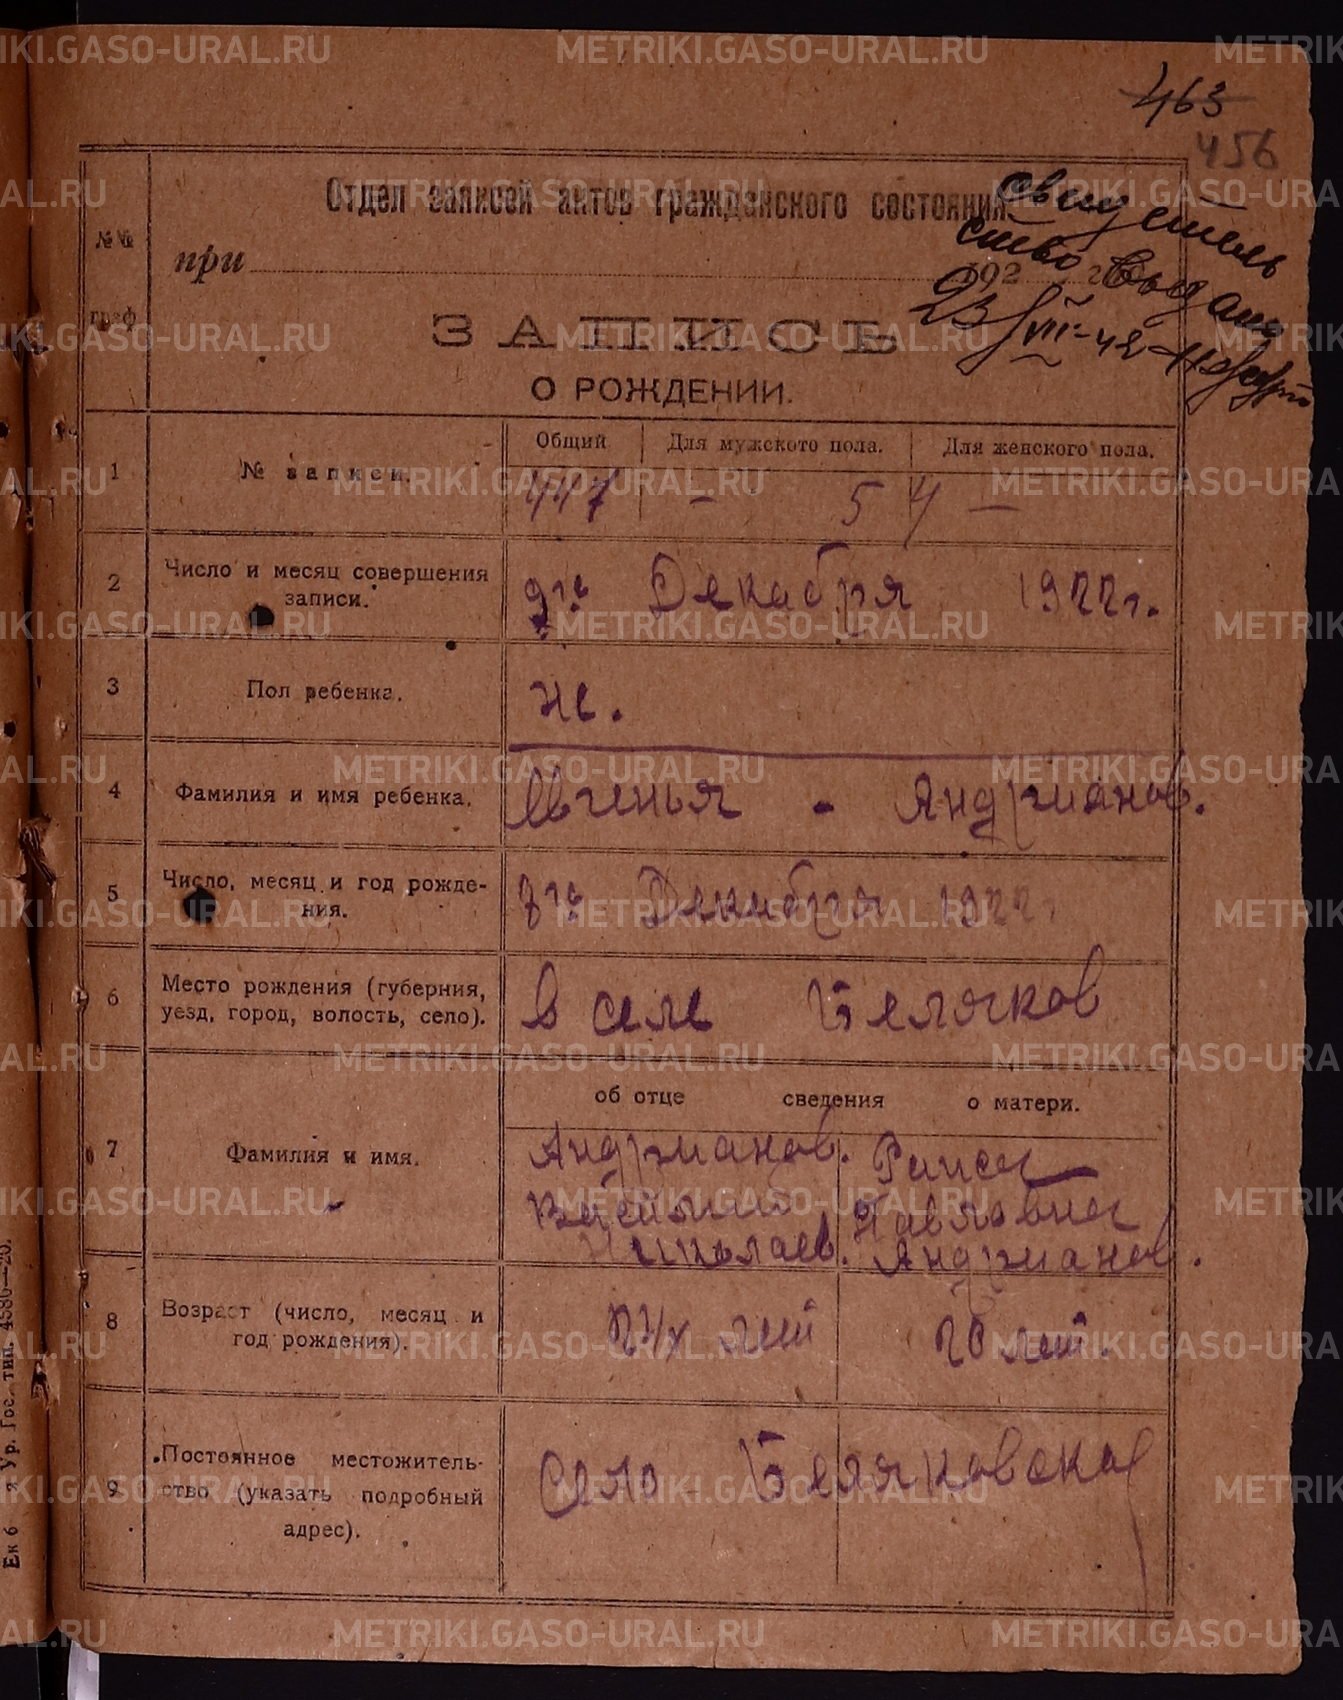 463
456
Отдел записей актов гражданского состояния
свидетель
ство выдано
23/VII-42
при 192 г.
№№ граф
ЗАПИСЬ
О РОЖДЕНИИ.
Общий Для мужского пола. Для женского пола.
1 № записи. 447 — 54 —
2 Число и месяц совершения
записи. 9го Декабря 1922г.
3 Пол ребенка. же.
4 Фамилия и имя ребенка. Евгенья - Андрианов.
5 Число, месяц и год рожде-
ния. 8го Декабря 1922
6 Место рождения (губерния,
уезд, город, волость, село). в селе Беляков
об отце сведения о матери.
7 Фамилия и имя. Андрианов. Раиса
Василий Павловна
Николаев. Андрианов.
8 Возраст (число, месяц и
год рождения). 24х лет 20 лет.
9 Постоянное местожитель-
ство (указать подробный
адрес). Село Беляковско
Ур. Гос. тип. 4586—20.
METRIKI.GASO-URAL.RU